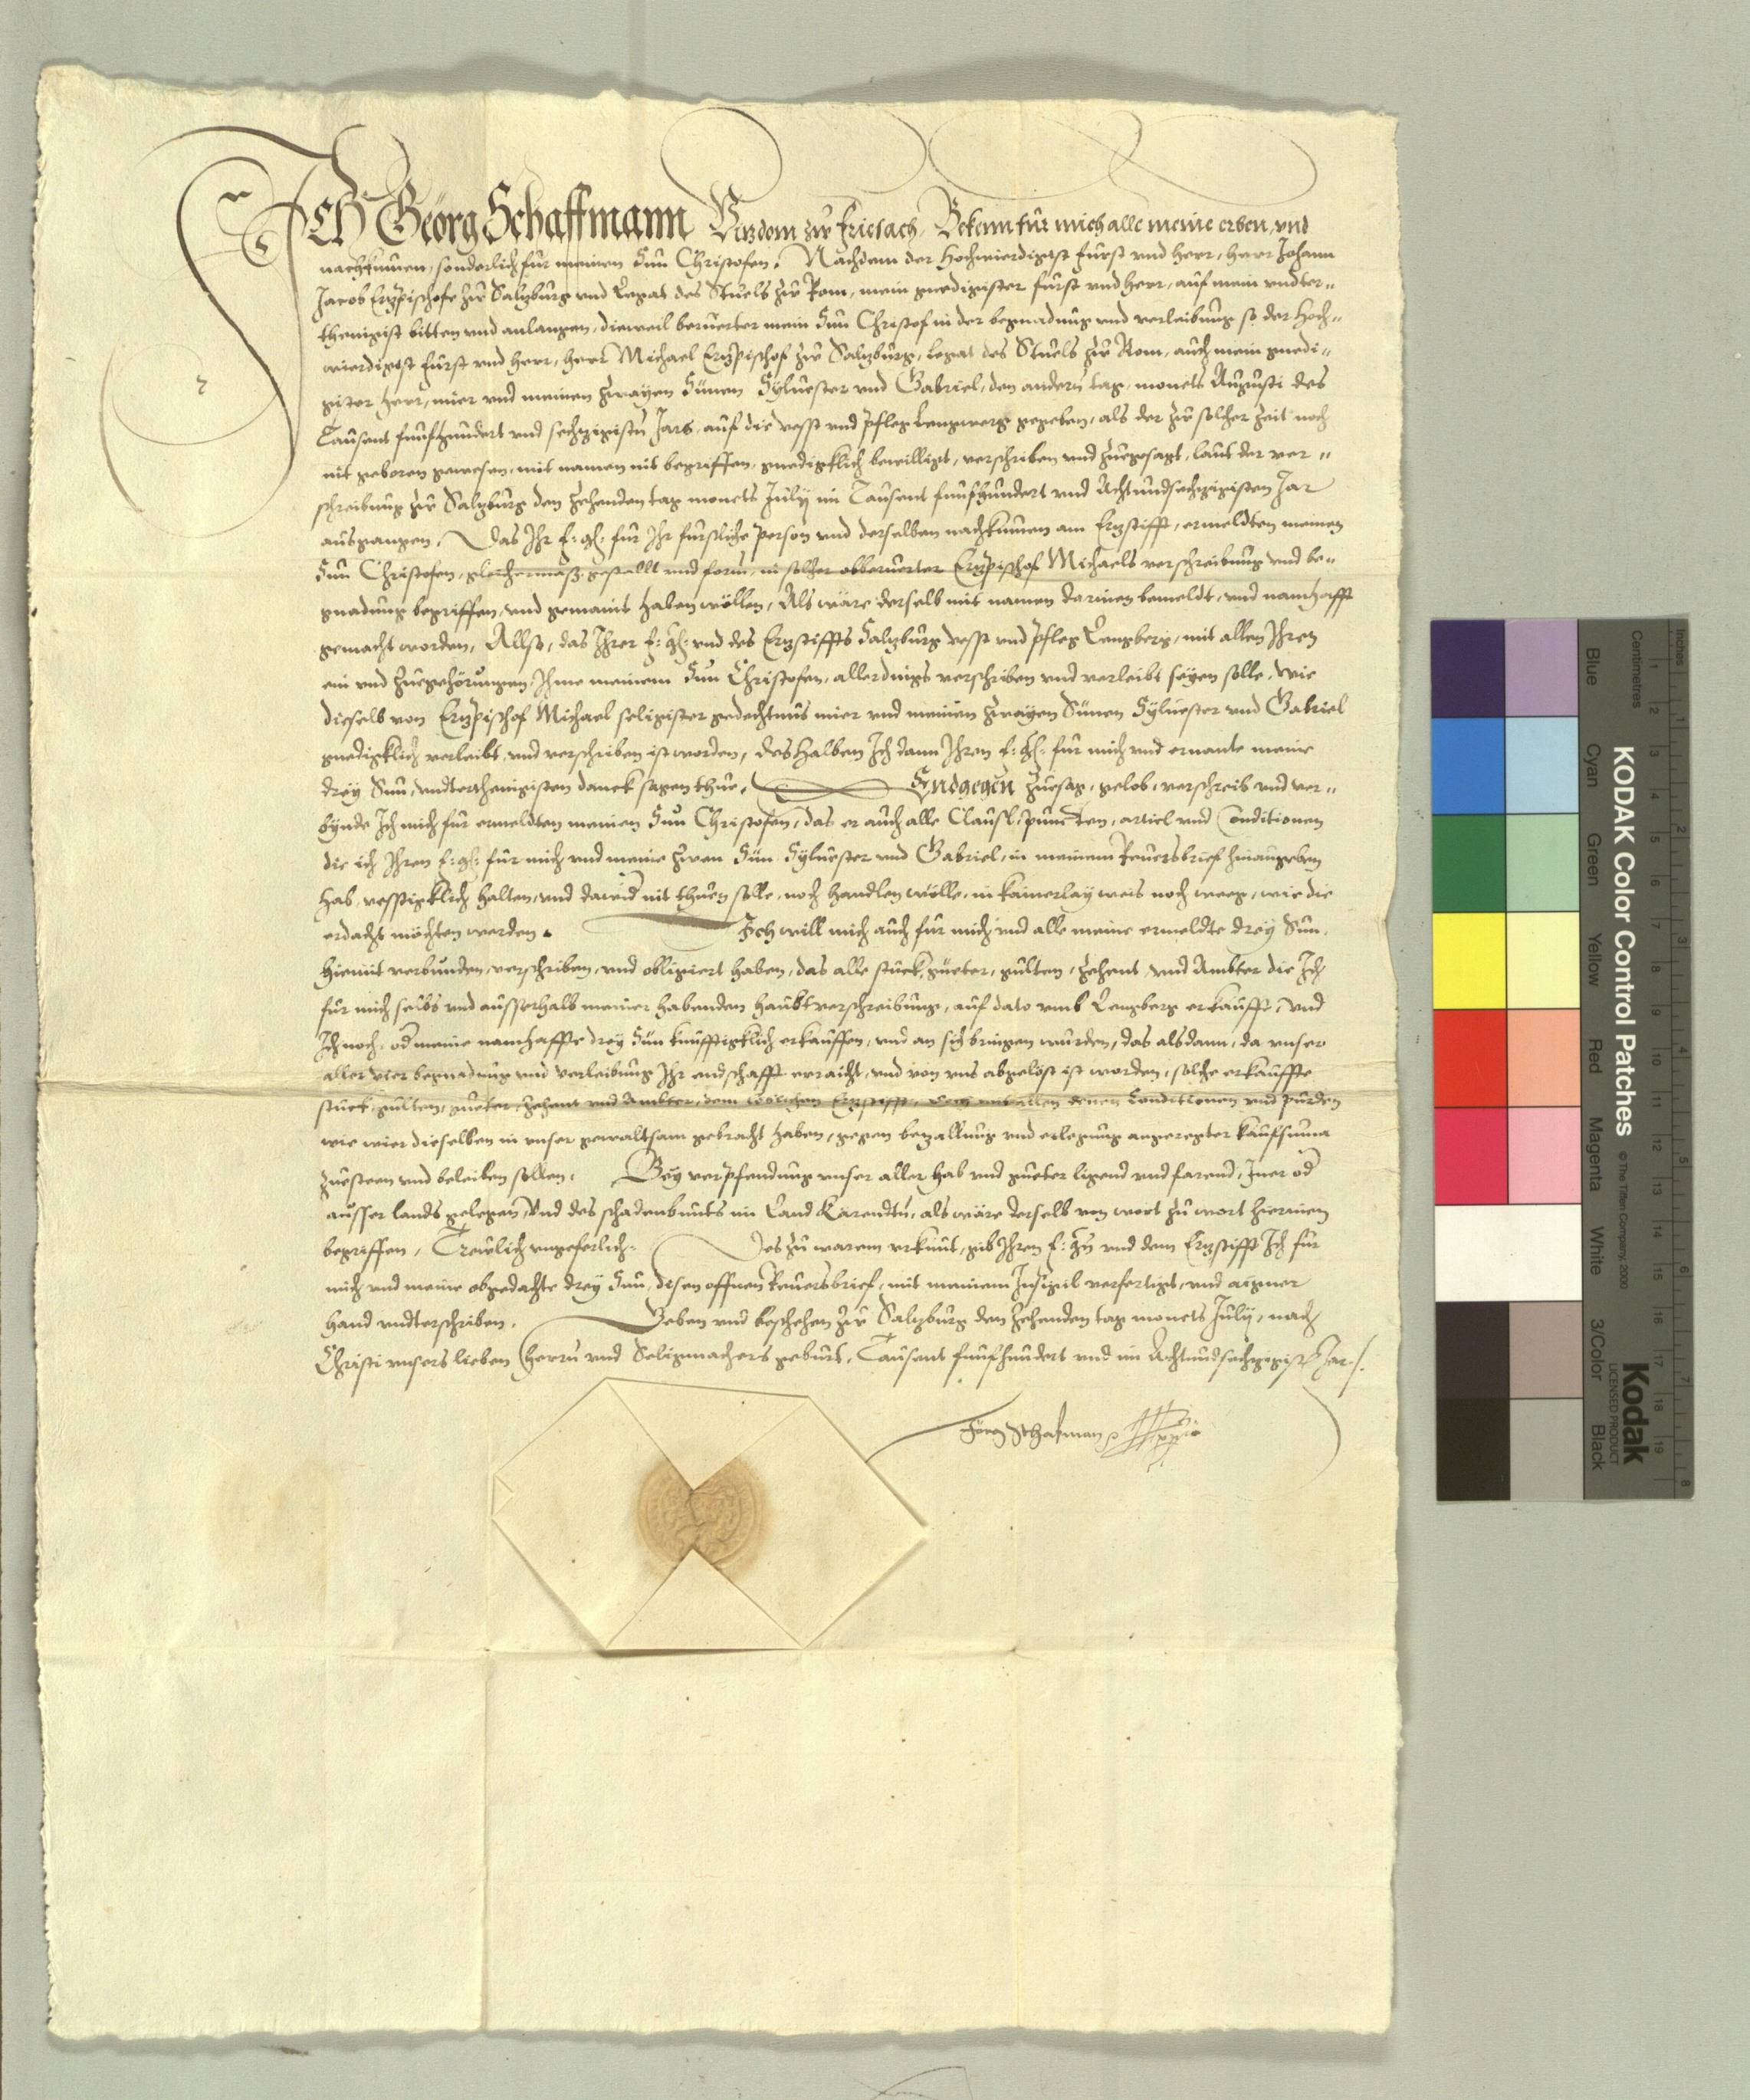 Ich Georg Schaffmann Vitzdom zw Friesach, Bekenn für mich alle meine erben, und
nachkumen, sonderlich für meinen Sun Christofen. Nachdem der Hochwierdigist fürst und herr, herr Johann
Jacob Ertzpischofe zw Saltzburg und Legat des Stuels zw Rom, mein gnedigister fürst und herr, auf mein undter-
thenigist bitten und anlangen, dieweil berüerter mein Sun Christof in der begnadung und verleibung so der Hoch-
wierdigist fürst und herr, herr Michael Ertzpischof zw Saltzburg, Legat des Stuels zw Rom, auch mein gnedi-
gister herr, mier und meinen zwayen Sünen Sylvester und Gabriel, den andern tag, monets Augusti des
Tausent fünfhundert und sechzigistn Jars, auf die vesst und pfleg Lengwerg gegeben, als der zw solcher zeit noch
nit geboren gewesen, mit namen nit begriffen, gnedigklich bewilligt, verschriben und zuegesagt, laut der ver-
schreibung zw Saltzburg den zehenden tag monets July im Tausent fünfhundert und Achtundsechzigisten Jar
ausgangen. Das Ihr f: gl: für Ihr fürstliche person und derselben nachkumen am Ertzstifft, ermeldten meinen
Sun Christofen, gleichermaß, gestallt und form, in solcher obberuerter Ertzpischof Michaels verschreibung und be-
gnadung begriffen, und gemaint haben wöllen, Als wäre derselb mit namen darinen bemeldt, und namhafft
gemacht worden, Allso, das Ihrer f: gl: und des Ertzstiffts Saltzburg vesst und pfleg Lengberg, mit allen Ihren
ein und zuegehörungen, Ihme meinem Sun Christofen, allerdings verschriben und verleibt seyen solle, wie
dieselb von Ertzpischof Michael seligister gedechtnus mier und meinen zwayen Sünen Sylvester und Gabriel
gnedigklich verleibt, und verschriben ist worden, deshalben Ich dann Ihren f: gl: für mich und ernante meine
drey Sun, undterthenigisten danck sagen thue. Endgegen zuesag, gelob, verschreib und ver-
bynde Ich mich für ermeldten meinen Sun Christofen, das er auch alle Clausl, puncten, articl und Conditionen
die ich Ihren f: gl: für mich und meine zwen Sün Sylvester und Gabriel, in meinem Reversbrief hinaus geben
hab, vesstigklich halten, und dawid nit thuen solle, noch handlen wölle, in kainerlay weis noch weeg, wie die
erdacht möchten werden. Ich will mich auch für mich und alle meine ermeldte drey Sun,
hiemit verbunden, verschriben, und obligiert haben, das alle stuck, güeter, gülten, zehent, und Ämbter die Ich
für mich selbs und ausserhalb meiner habenden haubtverschreibung, auf dato umb Lengberg erkaufft, und
Ich noch, od meine namhaffte drey Sün künfftigklich erkauffen, und an sich bringen wurden, das alsdann, da unser
aller vier begnadung und verleibung Ihr endschafft erraicht, und von uns abgelöst ist worden, solche erkauffte
stuck, gülten, güeter, zehent und Ämbter, dem Ertzstifft, mit allen denen Conditionen und pürden
wie wier dieselben in unser gewaltsam gebracht haben, gegen betzallung und erlegung angeregter kaufsuma
zuesteen und beleiben sollen. Bey verpfendung unser aller hab und güeter ligend und farend, Iner od
ausser lands gelegen, Und des schadenbunts im Land Kärendtn, als wäre derselb von wort zu wort hierinen
begriffen, Trewlich ungeferlich. Des zu warem urkunt, gib Ihren f: gn und dem Ertzstifft Ich für
mich und meine obgedachte drey Sun, disen offnen Reversbrief, mit meinem Insigil verfertigt, und aigner
hand undterschriben. Geben und beschehen zw Saltzburg den zehenden tag monets July, nach
Christi unsers lieben herrn und Seligmachers geburt, Tausent fünfhundert und im Achtundsechzigistn Jar.
Jörg Schafman
KODAK Color Control Patches
© The Tiffen Company, 2000
Kodak
LICENSED PRODUCT
Inches
Centimetres
Blue
Cyan
Green
Yellow
Red
Magenta
White
3/Color
Black